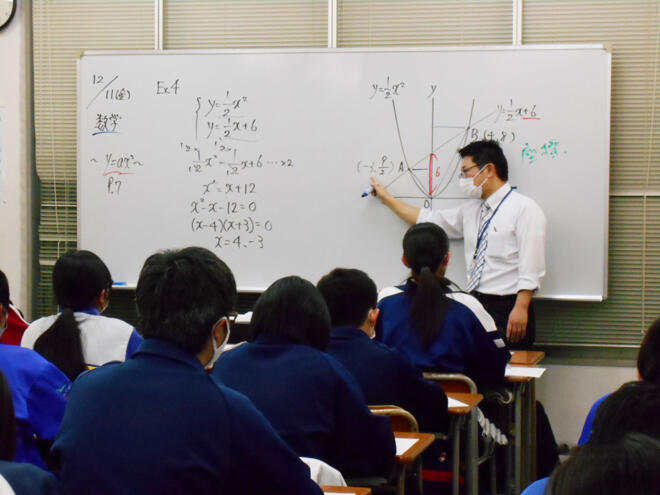 12/11(金)
Ex.4
数学
~y=ax²~
P.7
y=1/2x²
y=1/2x+6
1/2x²=1/2x+6 …×2
x²=x+12
x²-x-12=0
(x-4)(x+3)=0
x=4,-3
y=1/2x²
y
y=1/2x+6
B(4,8)
(-3, 9/2) A
6
O